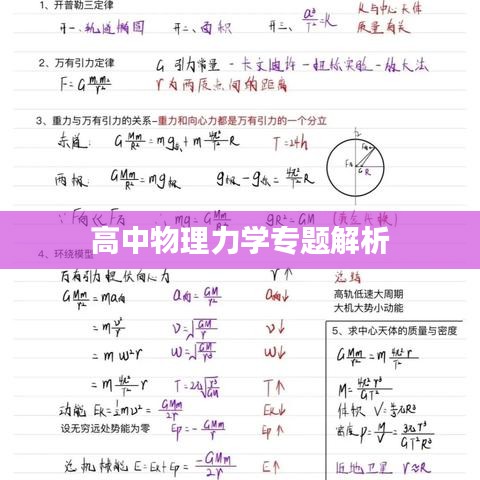 1、开普勒三定律
开一、轨道椭圆 开二、面积 开三、a³/T²=k k与中心天体质量有关
2、万有引力定律
G 引力常量-卡文迪许-扭秤实验-放大法
F=G m₁m₂/r² r为两质点间的距离
3、重力与万有引力的关系-重力和向心力都是万有引力的一个分立
赤道: G Mm/R²=mg赤+m 4π²/T² R T=24h
两极: G Mm/R²=mg极 g极-g赤=4π²/T² R
∵F向≪F万 ∴mg=G Mm/R² gR²=GM (黄金代换)
高中物理力学专题解析
4、环绕模型
万有引力提供向心力 r↑
G Mm/r²=ma向 a向=GM/r² a向↓
=m v²/r v=√(GM/r) v↓
=mω²r ω=√(GM/r³) ω↓
=m 4π²/T² r T=2π√(r³/GM) T↑
动能 Ek=½mv²=GMm/2r Ek↓
设无穷远处势能为零 Ep=-GMm/r Ep↑
总机械能 E=Ek+Ep=-GMm/2r E↑
总结
高轨低速大周期
大机大势小动能
5、求中心天体的质量与密度
G Mm/r²=m 4π²/T² r
M=4π²r³/GT²
体积 V=4/3 πR³
密度 ρ=M/V=3πr³/GT²R³
近地卫星 r≈R